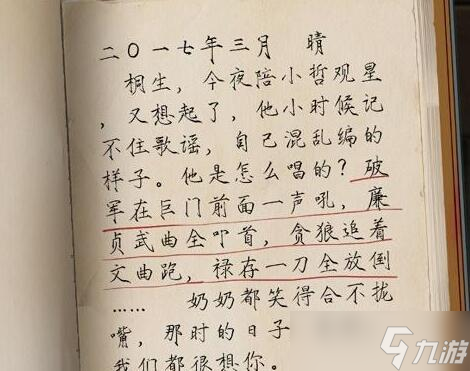 二〇一七年三月  晴
桐生，今夜陪小哲观星
，又想起了，他小时候记
不住歌谣，自己混乱编的
样子。他是怎么唱的？破
军在巨门前面一声吼，廉
贞武曲全叩首，贪狼追着
文曲跑，禄存一刀全放倒
……  奶奶都笑得合不拢
嘴，那时的日子
我们都很想你。
九游